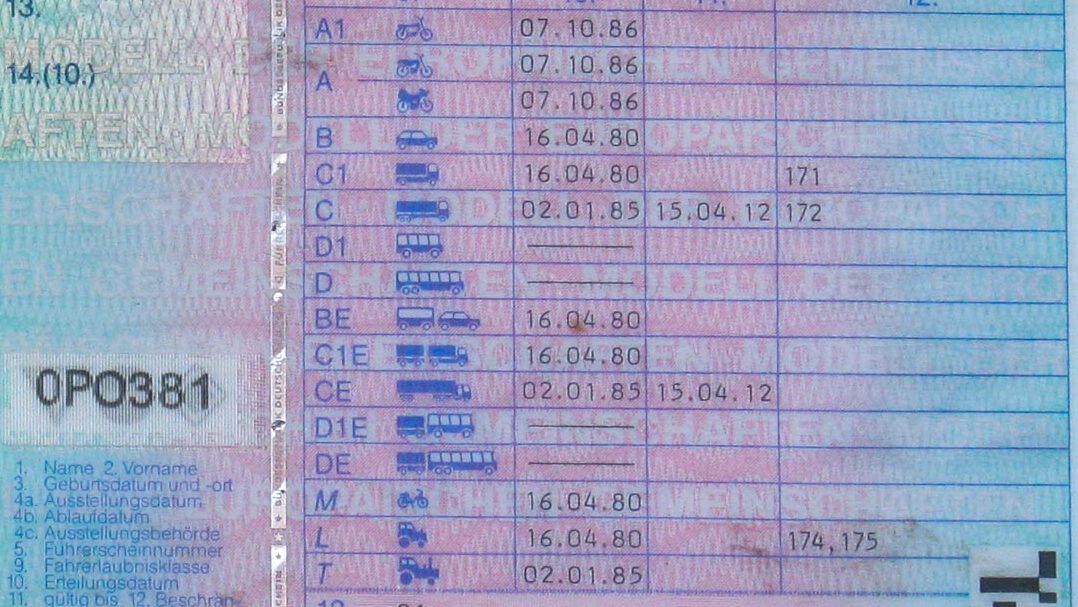 13.
14.(10.)
10. 11. 12.
A1 07.10.86
A 07.10.86
07.10.86
B 16.04.80
C1 16.04.80 171
C 02.01.85 15.04.12 172
D1
D
BE 16.04.80
C1E 16.04.80
CE 02.01.85 15.04.12
D1E
DE
M 16.04.80
L 16.04.80 174,175
T 02.01.85
0PO381
1. Name 2. Vorname
3. Geburtsdatum und -ort
4a. Ausstellungsdatum
4b. Ablaufdatum
4c. Ausstellungsbehörde
5. Führerscheinnummer
9. Fahrerlaubnisklasse
10. Erteilungsdatum
11. gültig bis 12. Beschrän-